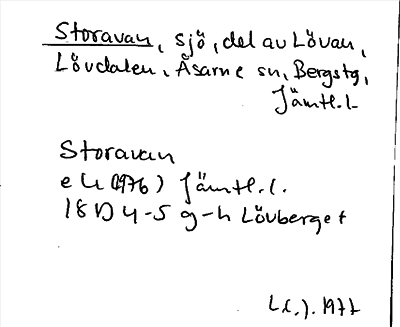 Storavan, sjö, del av Lövan,
Lövdalen, Åsarne sn, Bergstg,
Jämtl. l.
Storavan
ek (1976) Jämtl. l.
18D 4-5 g-h Lövberget
1977